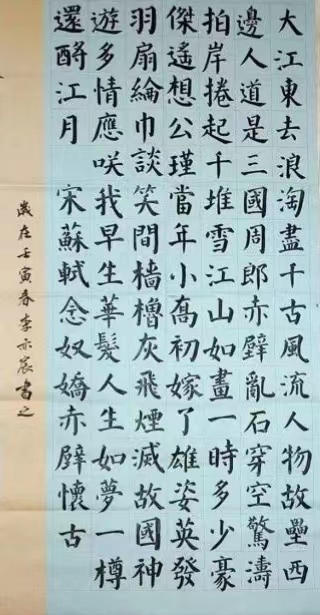 大江東去浪淘盡千古風流人物故壘西
邊人道是三國周郎赤壁亂石穿空驚濤
拍岸捲起千堆雪江山如畫一時多少豪
傑遙想公瑾當年小喬初嫁了雄姿英發
羽扇綸巾談笑間檣櫓灰飛煙滅故國神
遊多情應咲我早生華髮人生如夢一樽
還酹江月 宋蘇軾念奴嬌赤壁懷古
歲在壬寅春李亦宸書之